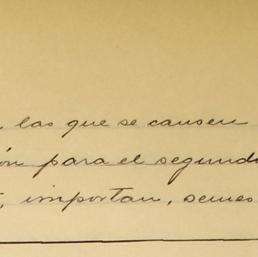 las que se causen
ón para el segund
, importan, semes